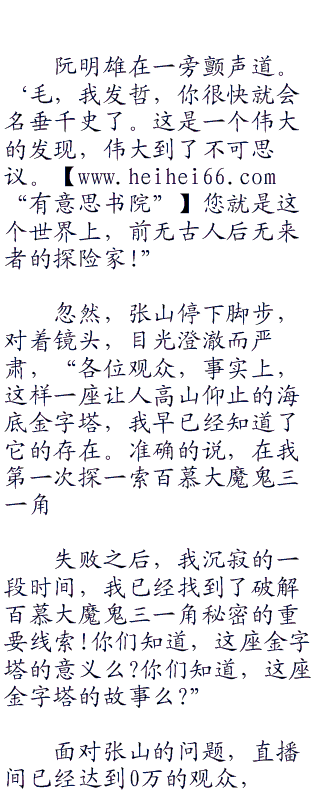 阮明雄在一旁颤声道。
‘毛，我发哲，你很快就会
名垂千史了。这是一个伟大
的发现，伟大到了不可思
议。【www.heihei66.com
“有意思书院”】您就是这
个世界上，前无古人后无来
者的探险家!”
忽然，张山停下脚步，
对着镜头，目光澄澈而严
肃，“各位观众，事实上，
这样一座让人高山仰止的海
底金字塔，我早已经知道了
它的存在。准确的说，在我
第一次探一索百慕大魔鬼三
一角
失败之后，我沉寂的一
段时间，我已经找到了破解
百慕大魔鬼三一角秘密的重
要线索!你们知道，这座金字
塔的意义么?你们知道，这座
金字塔的故事么?”
面对张山的问题，直播
间已经达到0万的观众，